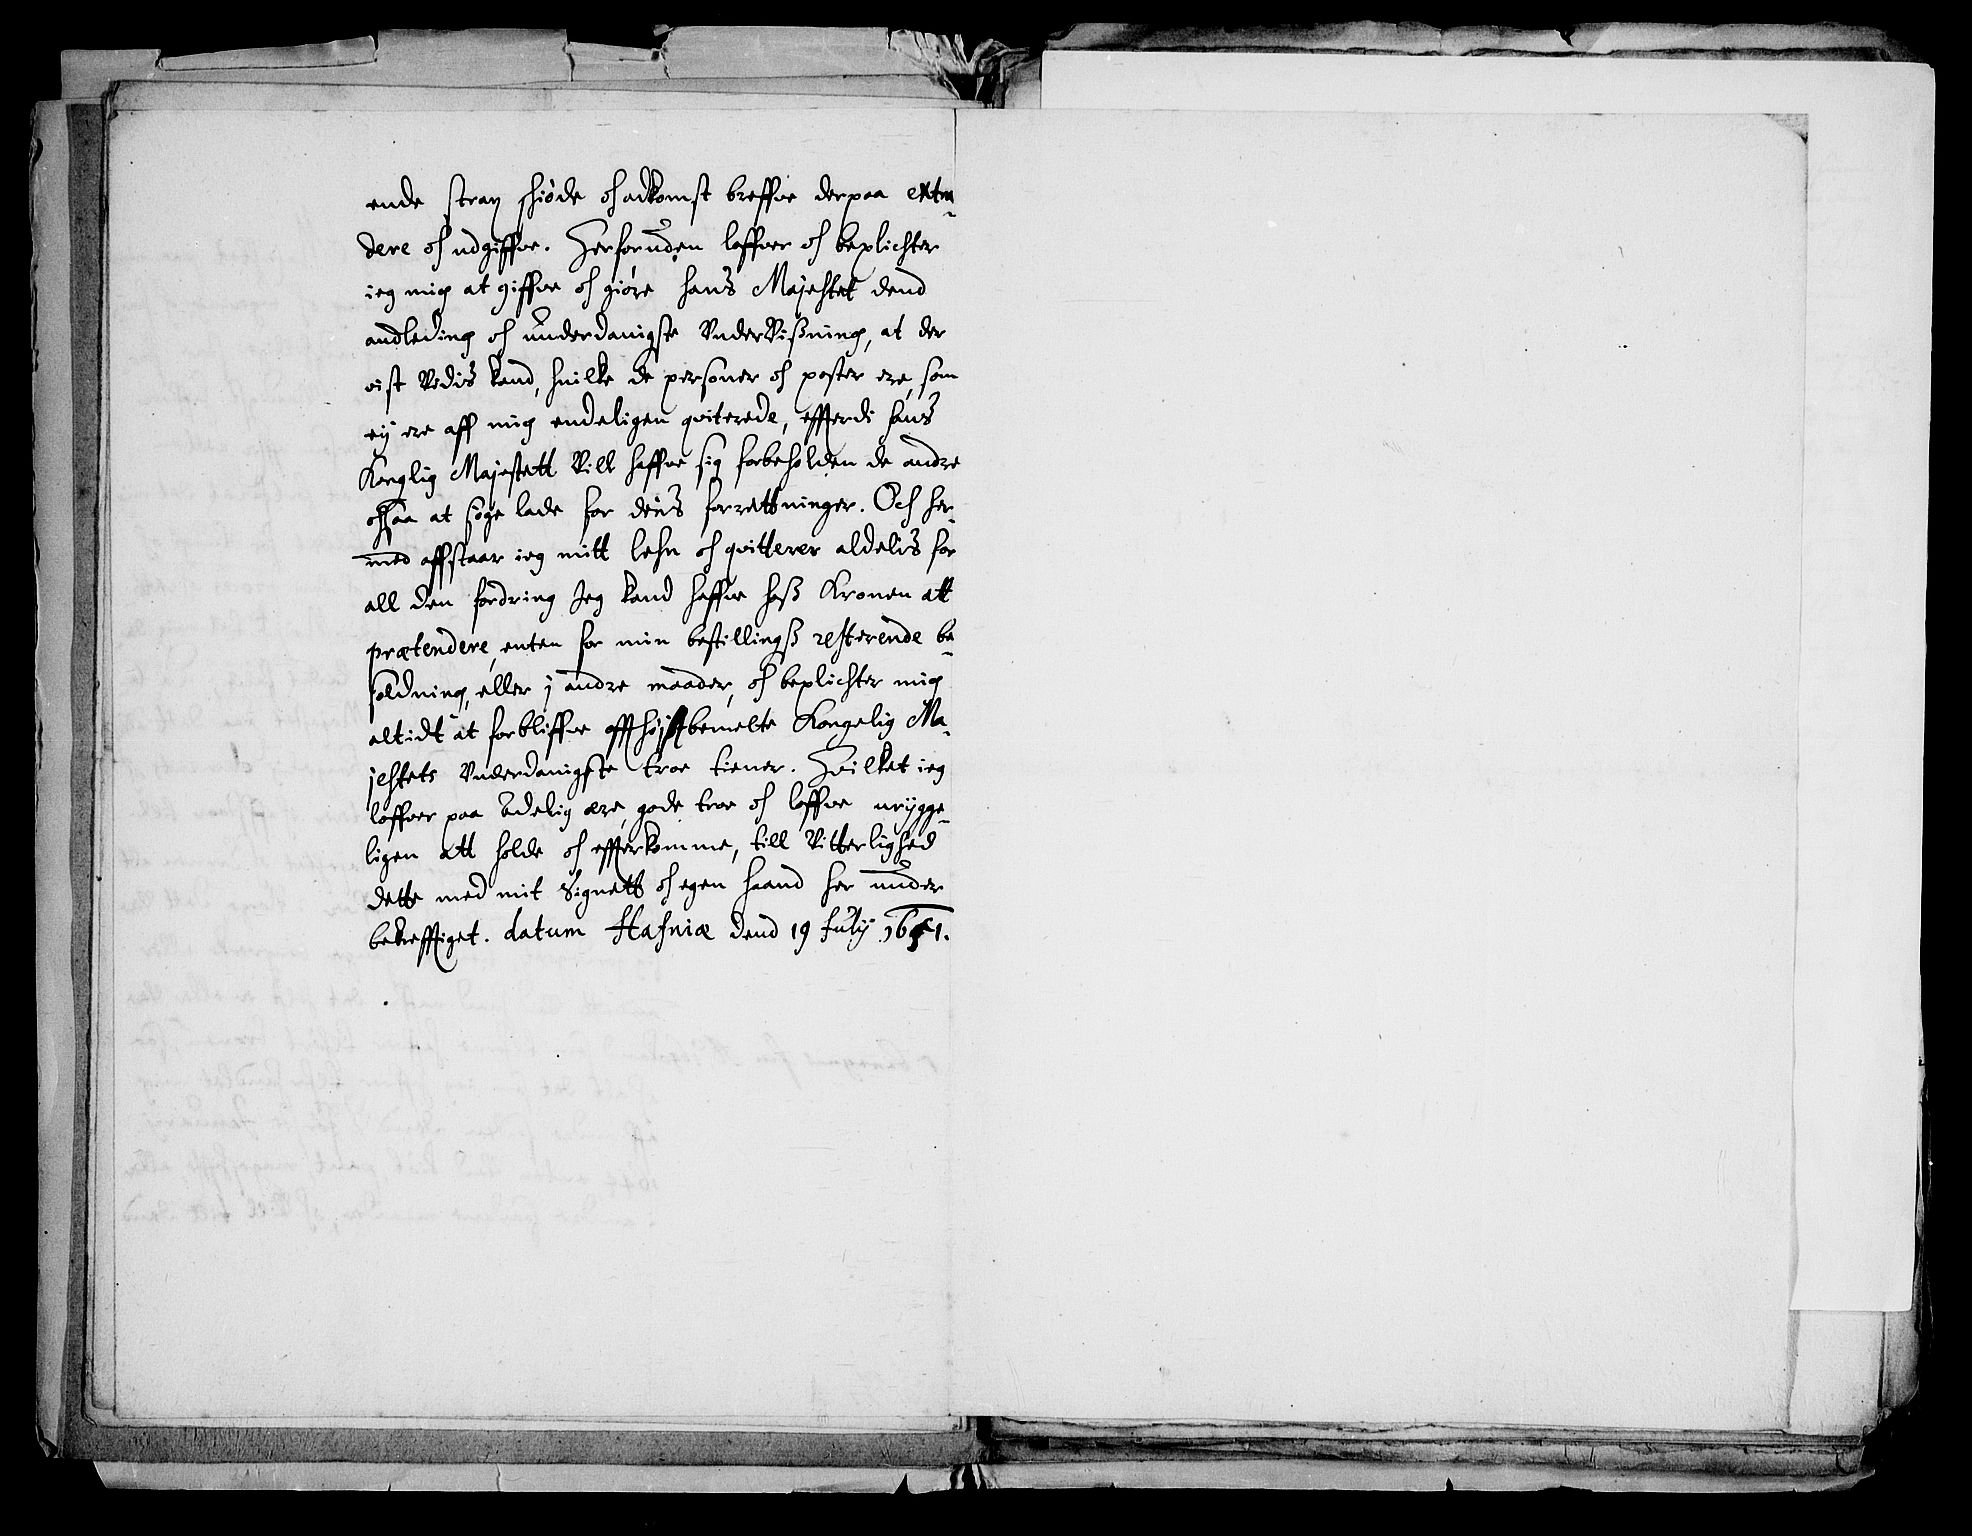 ende strax skiøde och adkomst breffve derpaa extra-
dere och udgiffve. Herforuden loffver och beplichter
ieg mig at giffve och giøre hans Majestet dend
andleding och underdanigste VnderVißning, at der
vist Vidis kand, huilke de personer och poster ere, som
eÿ ere aff mig endeligen qviterede, effterdi hans
Konglig Majestett Vill haffve sig forbeholden de andre
ochsaa at søge lade for deris forrettninger. Och her-
med affstaar ieg mitt lehn och qvitterer aldelis for
all den fordring Jeg kand haffve hoß Kronen att
prætendere, enten for min bestillingß resterende be-
soldning, eller j andre maader, och beplichter mig
altidt at forbliffve offthøjstbemelte Kongelig Ma-
jestets Vnderdanigste troe tiener. Hvilket ieg
loffver paa Adelig ære, gode troe och loffve urÿgge-
ligen att holde och effterkomme, till Vitterlighed
dette med mit Signett och egen haand her under
bekrefftiget. datum Hafniæ dend 19 Julÿ 1651.